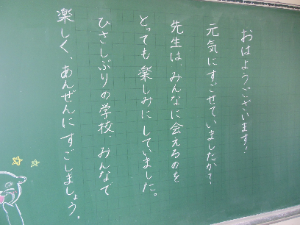 おはようございます!
元気にすごせていましたか?
先生は、みんなに会えるのを
とっても楽しみにしていました。
ひさしぶりの学校、みんなで
楽しく、あんぜんにすごしましょう。